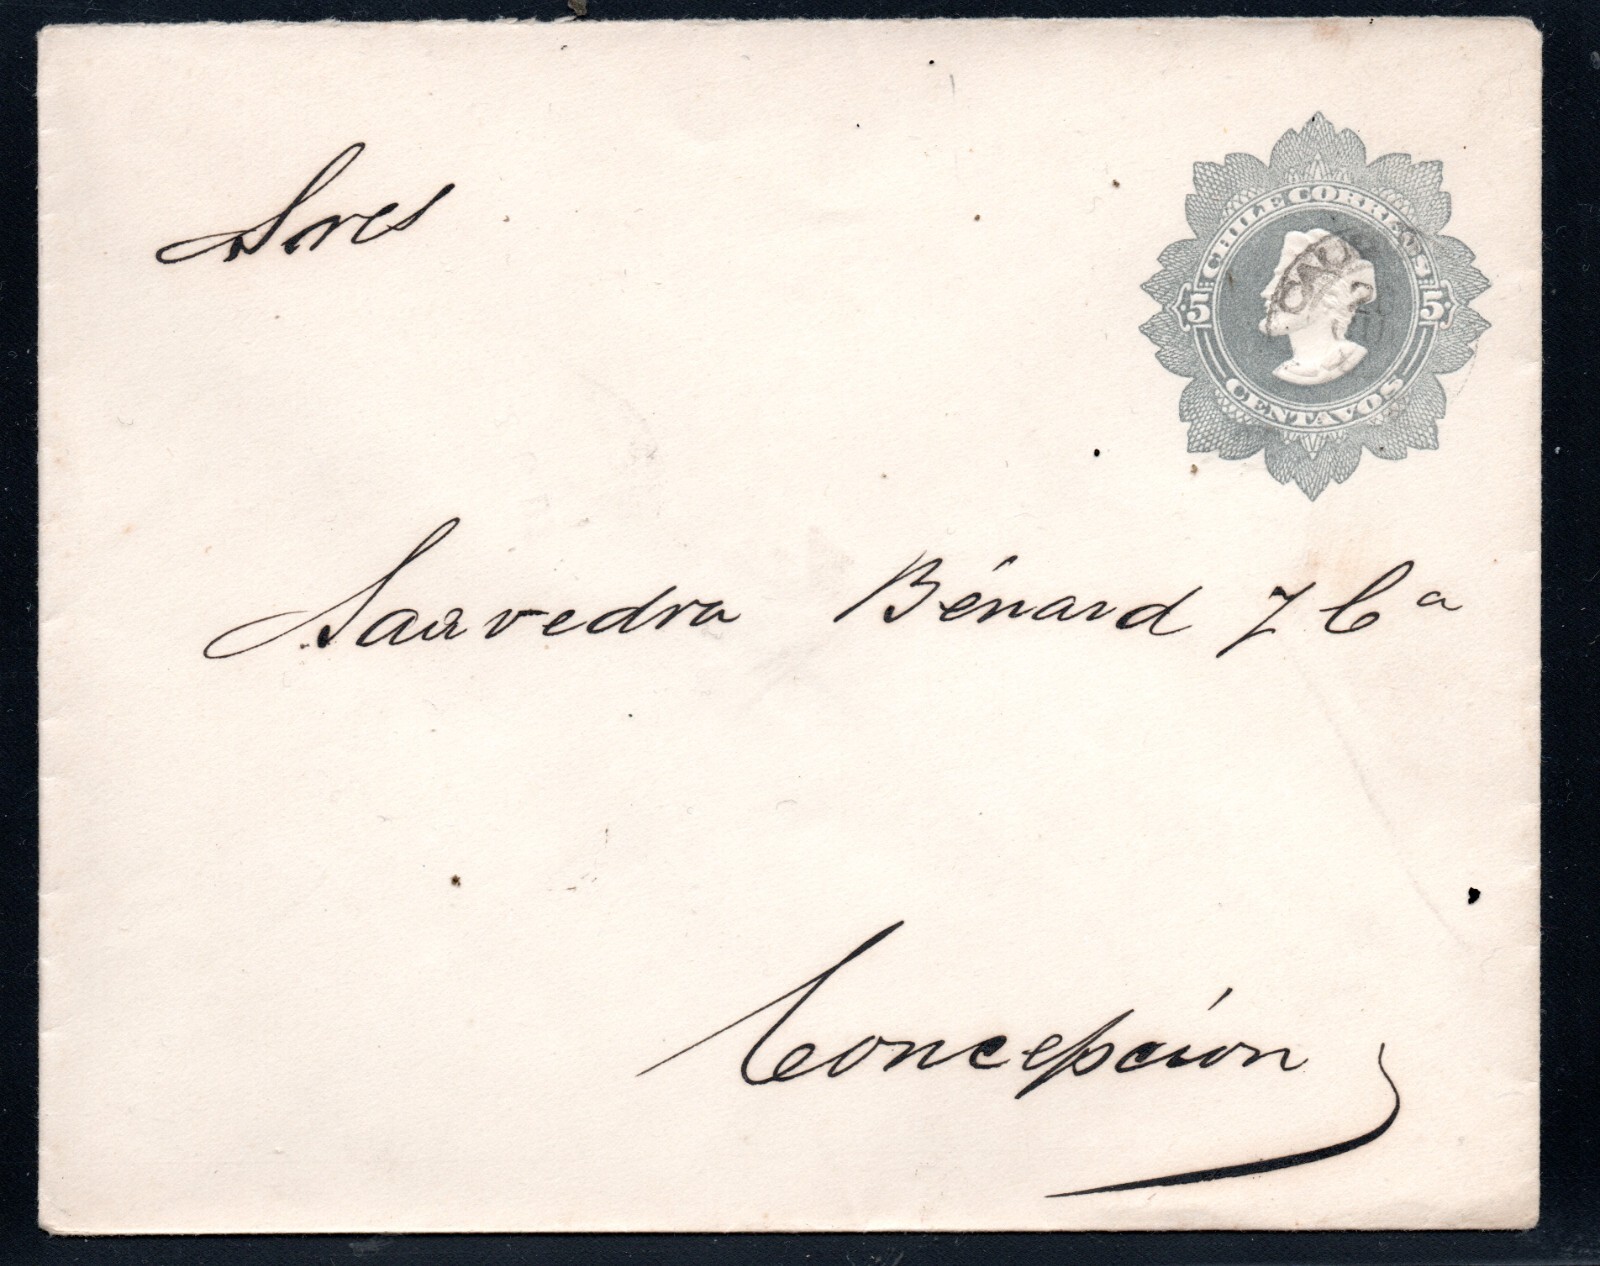 CHILE CORREOS
5 5
CENTAVOS
Sres
Saavedra Bénard y Ca
Concepción